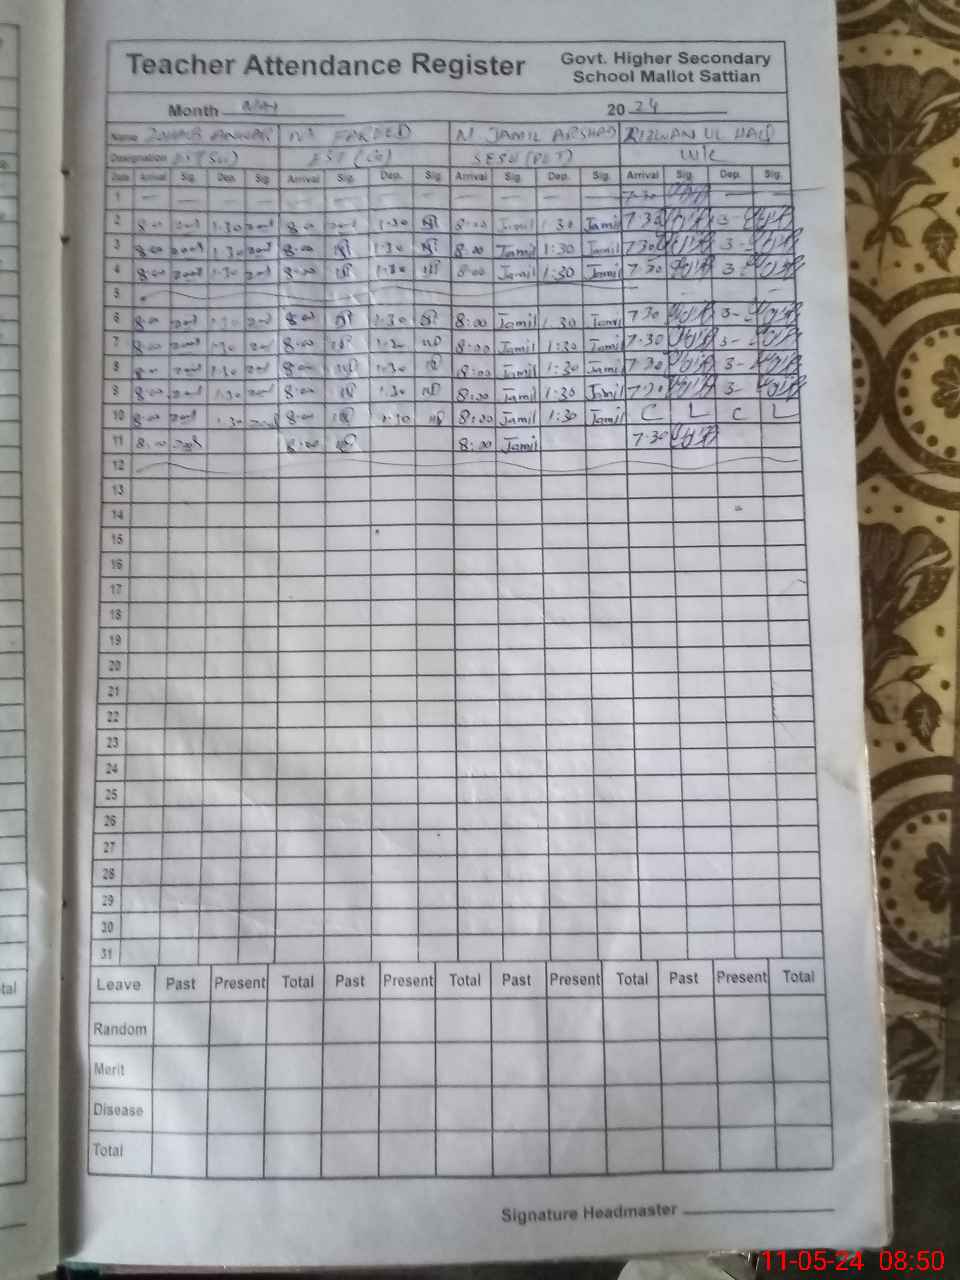 Teacher Attendance Register
Govt. Higher Secondary
School Mallot Sattian
Month May 2024
Name ZOHAIB ANWAR M FAREED M JAMIL ARSHAD RIZWAN UL HAQ
Designation EST (G) SESE (PET) W/C
Date Arrival Sig. Dep. Sig. Arrival Sig. Dep. Sig. Arrival Sig. Dep. Sig. Arrival Sig. Dep. Sig.
1 — — — — — — — — — — — — 7-30 — —
2 8-00 1-30 8-00 1-30 8:00 Jamil 1:30 Jamil 7-30 3-
3 8-00 1-30 8-00 1-30 8:00 Jamil 1:30 Jamil 7-30 3-
4 8-00 1-30 8-00 1-30 8:00 Jamil 1:30 Jamil 7-30 3-
5
6 8-00 1-30 8-00 1-30 8:00 Jamil 1:30 Jamil 7-30 3-
7 8-00 1-30 8-00 1-30 8:00 Jamil 1:30 Jamil 7-30 3-
8 8-00 1-30 8-00 1-30 8:00 Jamil 1:30 Jamil 7-30 3-
9 8-00 1-30 8-00 1-30 8:00 Jamil 1:30 Jamil 7-30 3-
10 8-00 1-30 8-00 1-30 8:00 Jamil 1:30 Jamil C L C L
11 8-00 8-00 8:00 Jamil 7-30
12
13
14
15
16
17
18
19
20
21
22
23
24
25
26
27
28
29
30
31
Leave Past Present Total Past Present Total Past Present Total Past Present Total
Random
Merit
Disease
Total
Signature Headmaster
tal
11-05-24 08:50